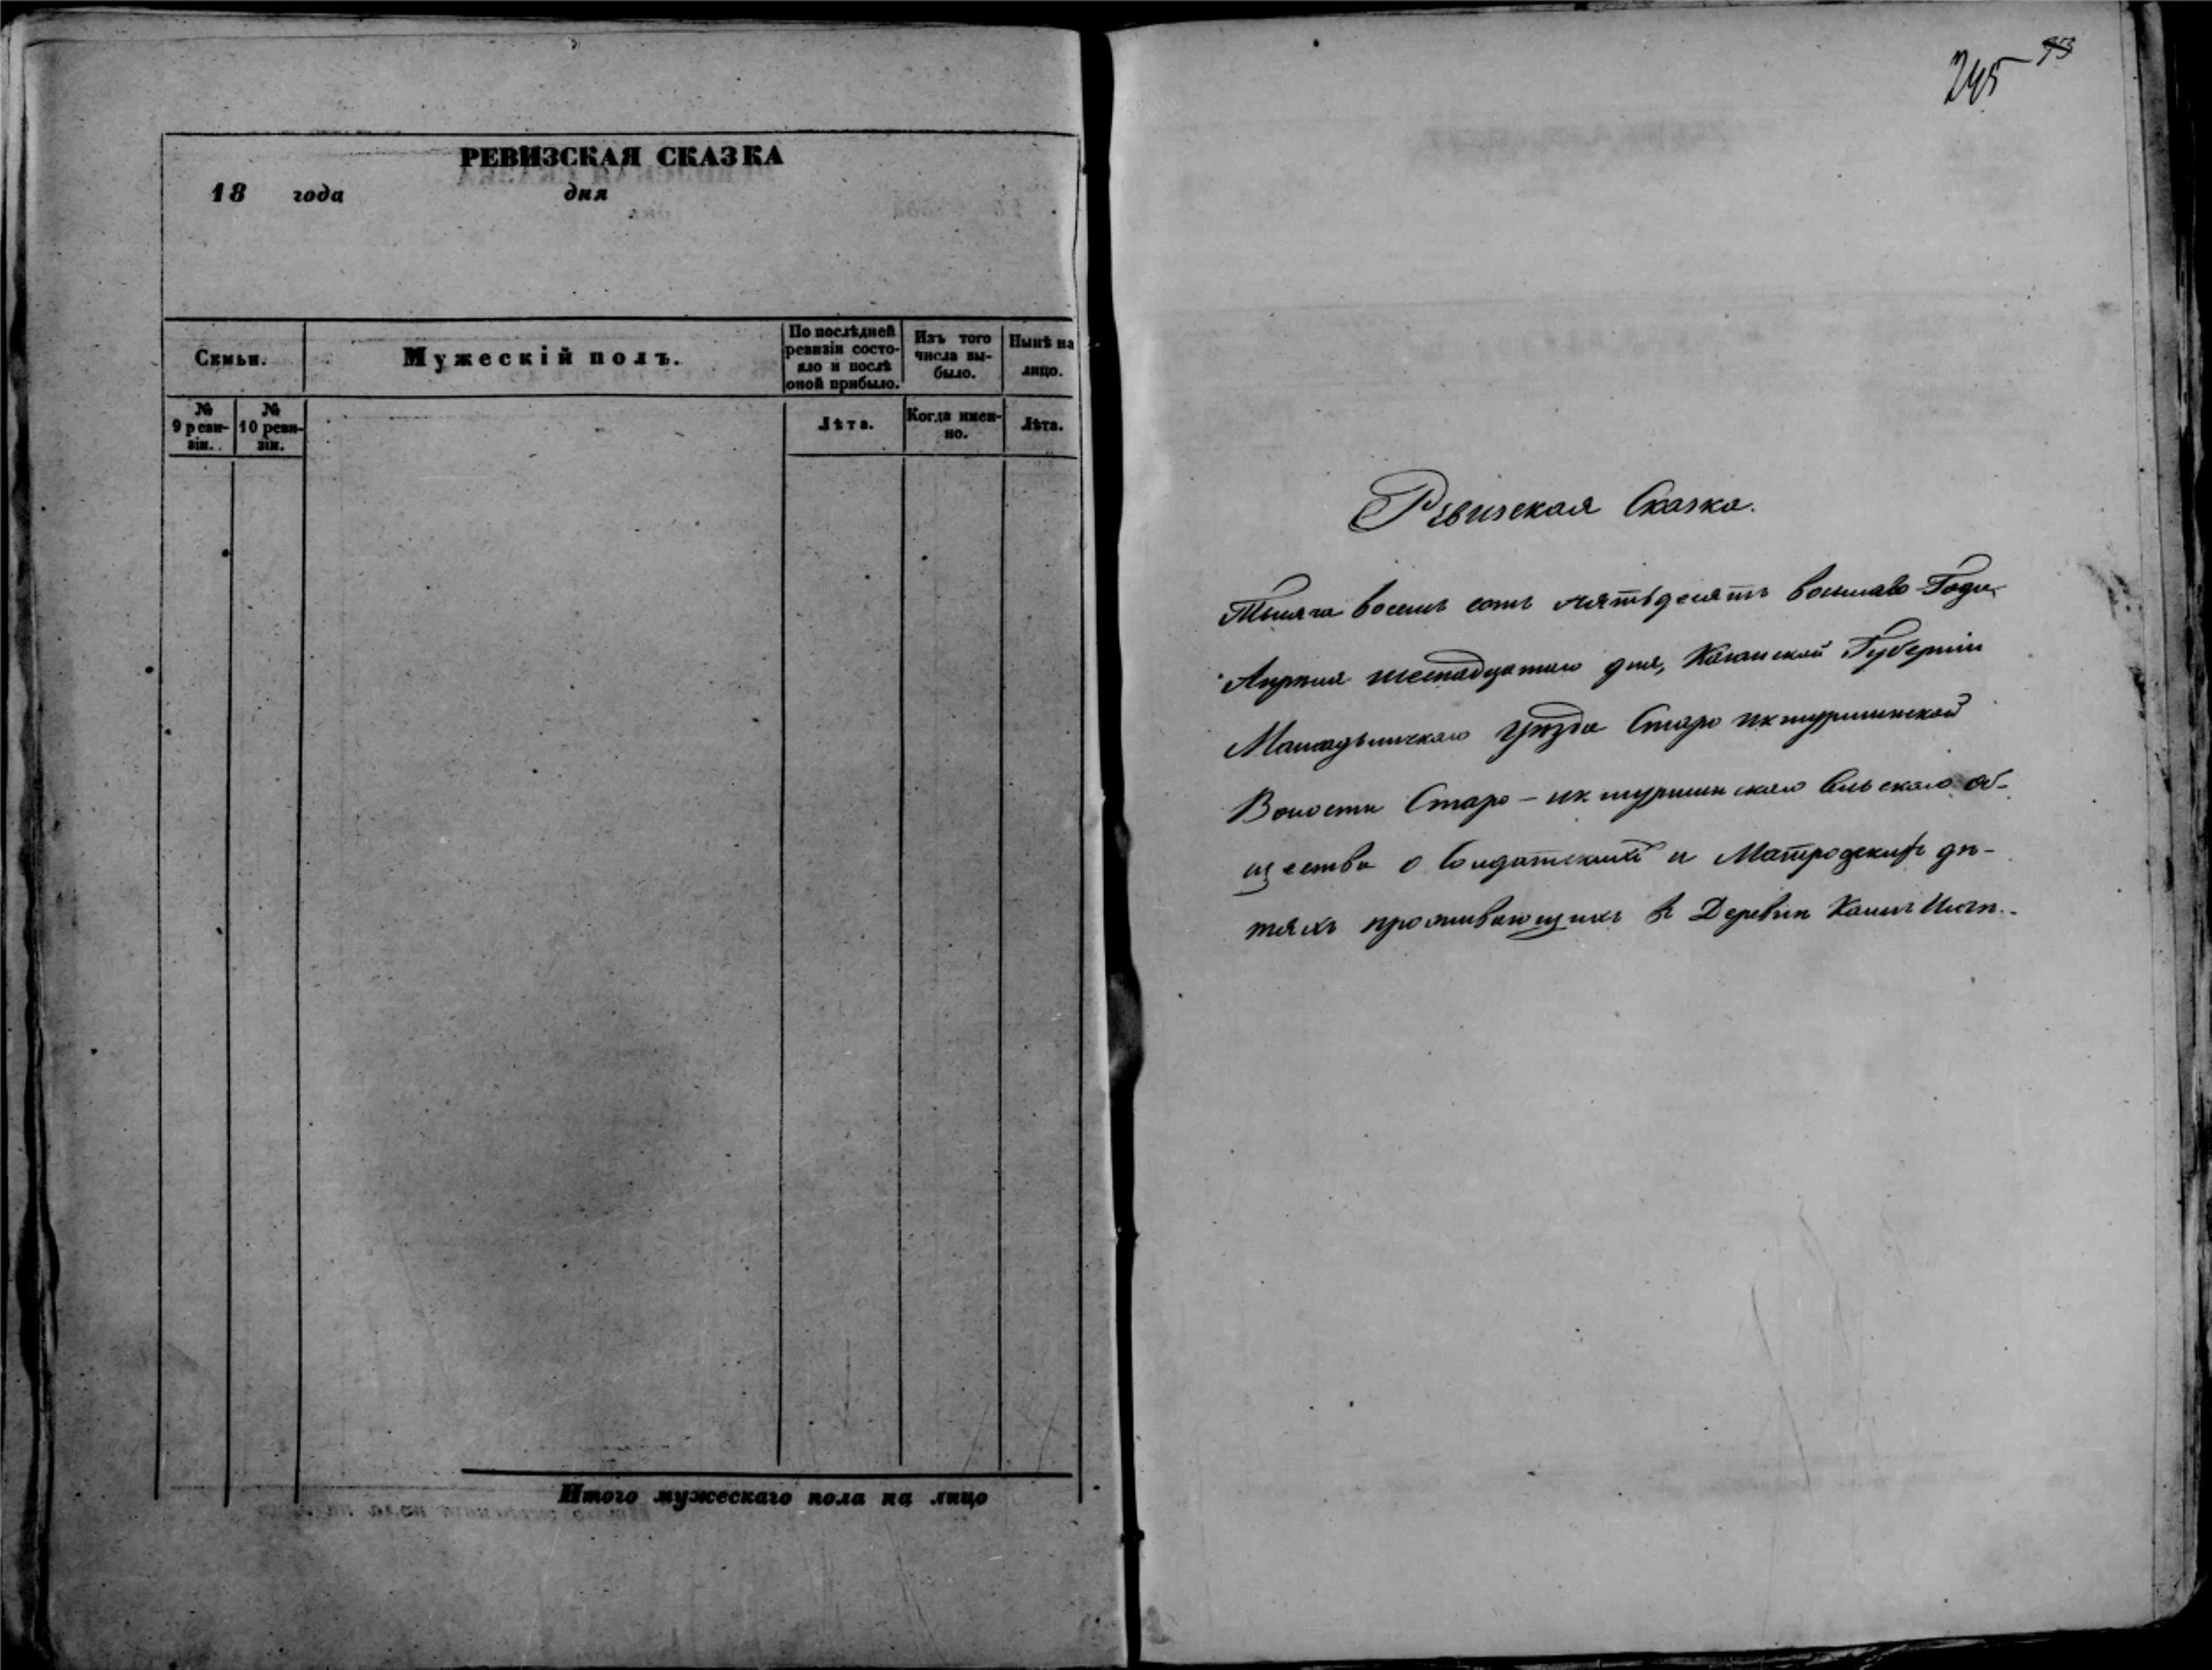 РЕВИЗСКАЯ СКАЗКА
18 года дня
Семьи.
Мужескій полъ.
По послѣдней
ревизіи состо-
яло и послѣ
оной прибыло.
Изъ того
числа вы-
было.
Нынѣ на
лицо.
№
9 реви-
зіи.
№
10 реви-
зіи.
Лѣта.
Когда имен-
но.
Лѣта.
Итого мужескаго пола на лицо
245
Ревизская Сказка.
Тысяча восемь сотъ пятьдесятъ восьмаво Года,
Апрѣля шестнадцатаго дня, Казанской Губерніи
Мамадышскаго Уѣзда Старо икшурминской
Волости Старо-икшурминскаго сельскаго об-
щества о Солдатскихъ и Матроскихъ дѣ-
тяхъ проживающихъ въ Деревнѣ